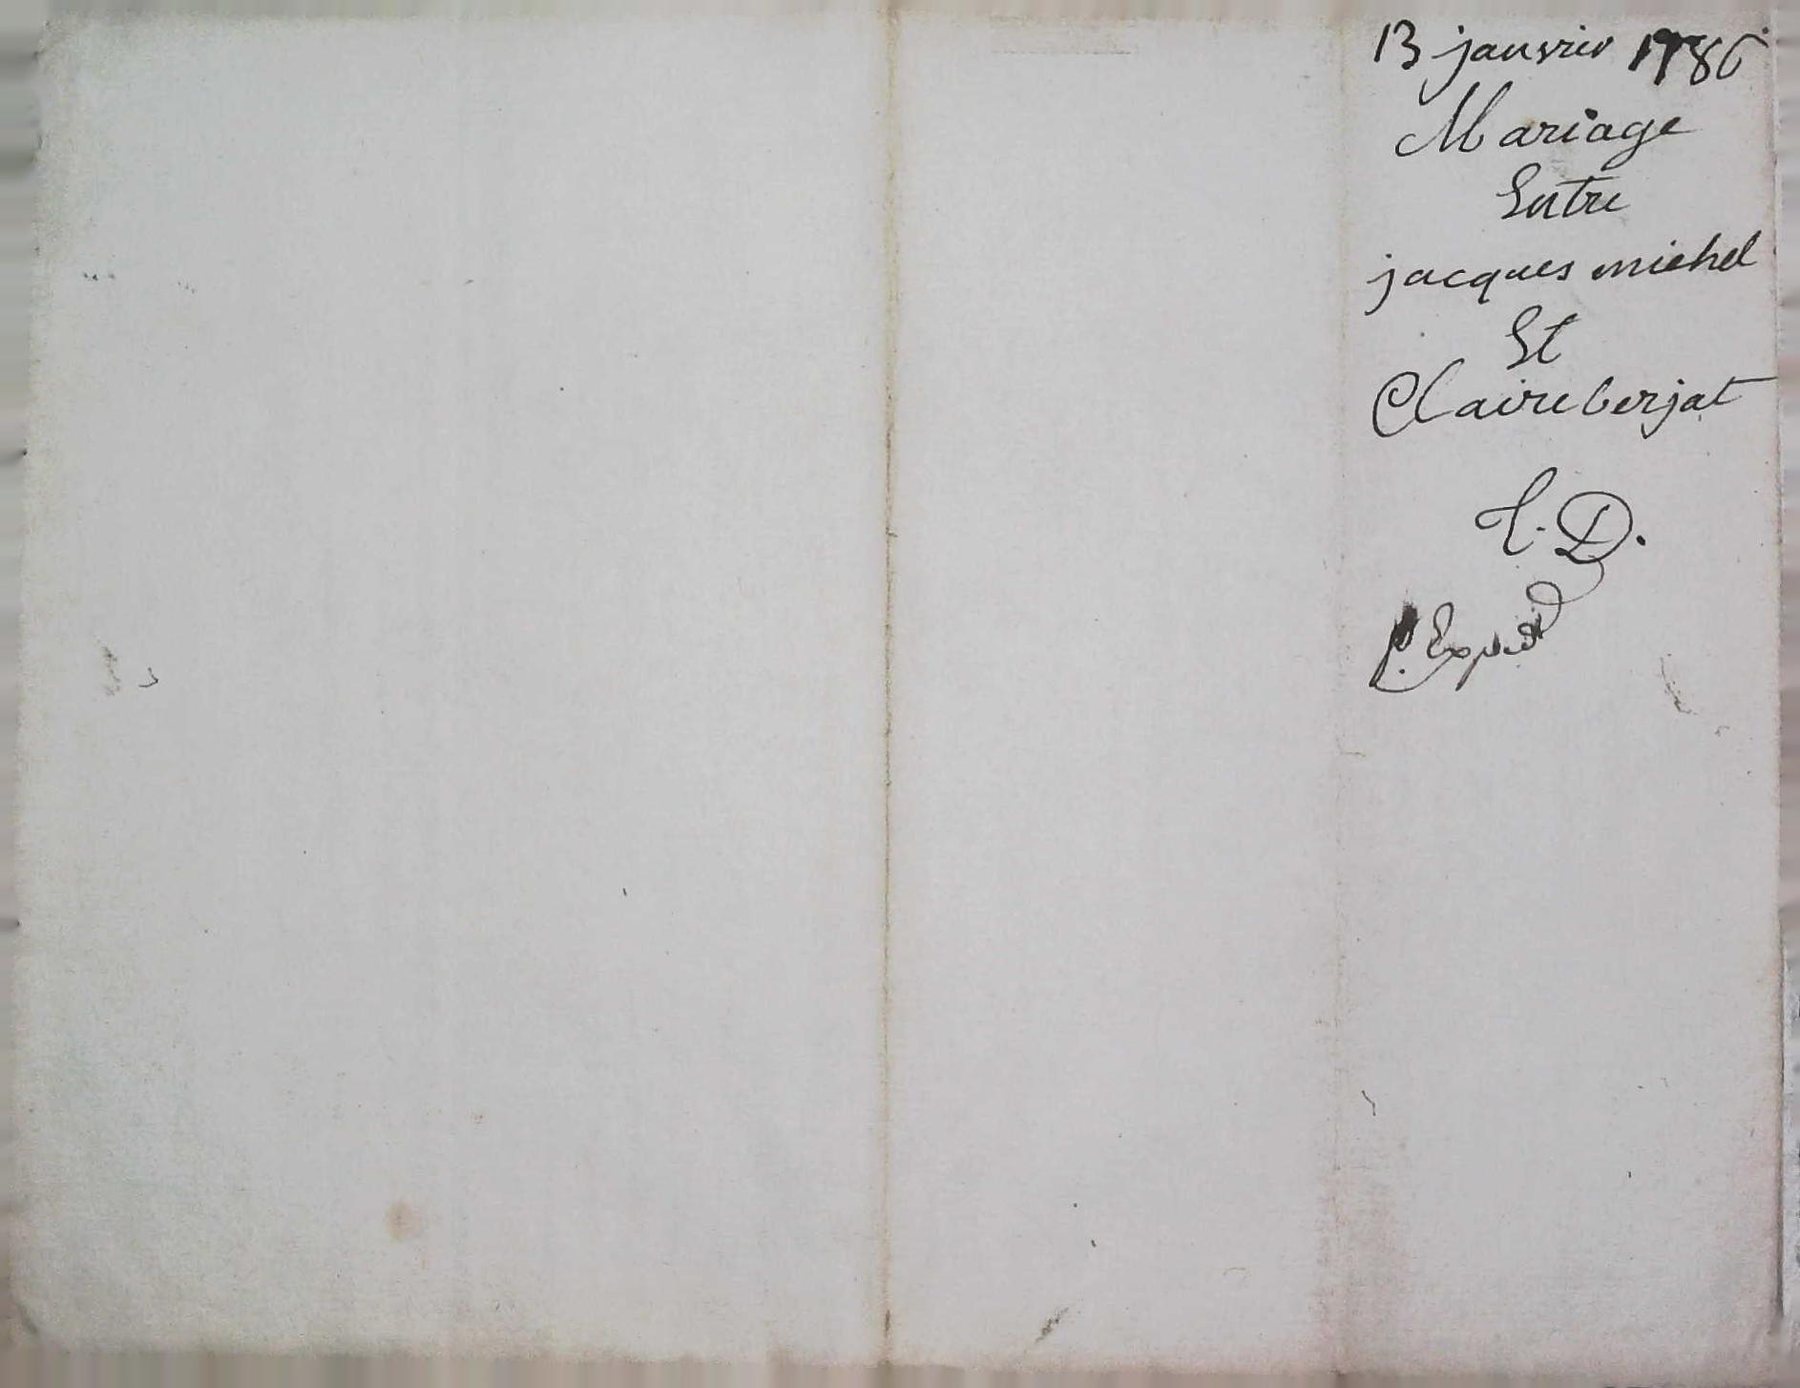 13 janvier 1786
Mariage
Entre
jacques michel
Et
Claire berjat
D.
Exped